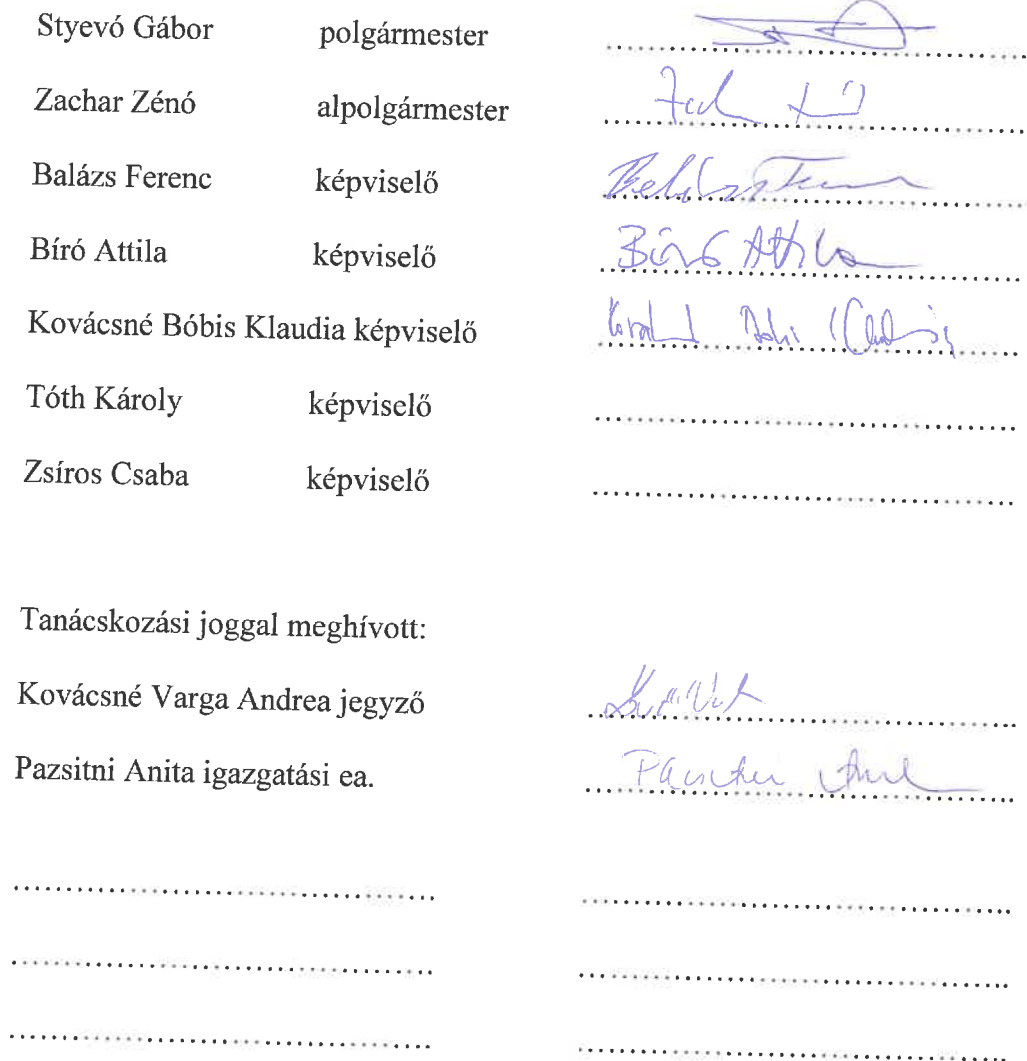 Styevó Gábor polgármester
Zachar Zénó alpolgármester
Balázs Ferenc képviselő
Bíró Attila képviselő Bíró Attila
Kovácsné Bóbis Klaudia képviselő
Tóth Károly képviselő
Zsíros Csaba képviselő
Tanácskozási joggal meghívott:
Kovácsné Varga Andrea jegyző
Pazsitni Anita igazgatási ea.